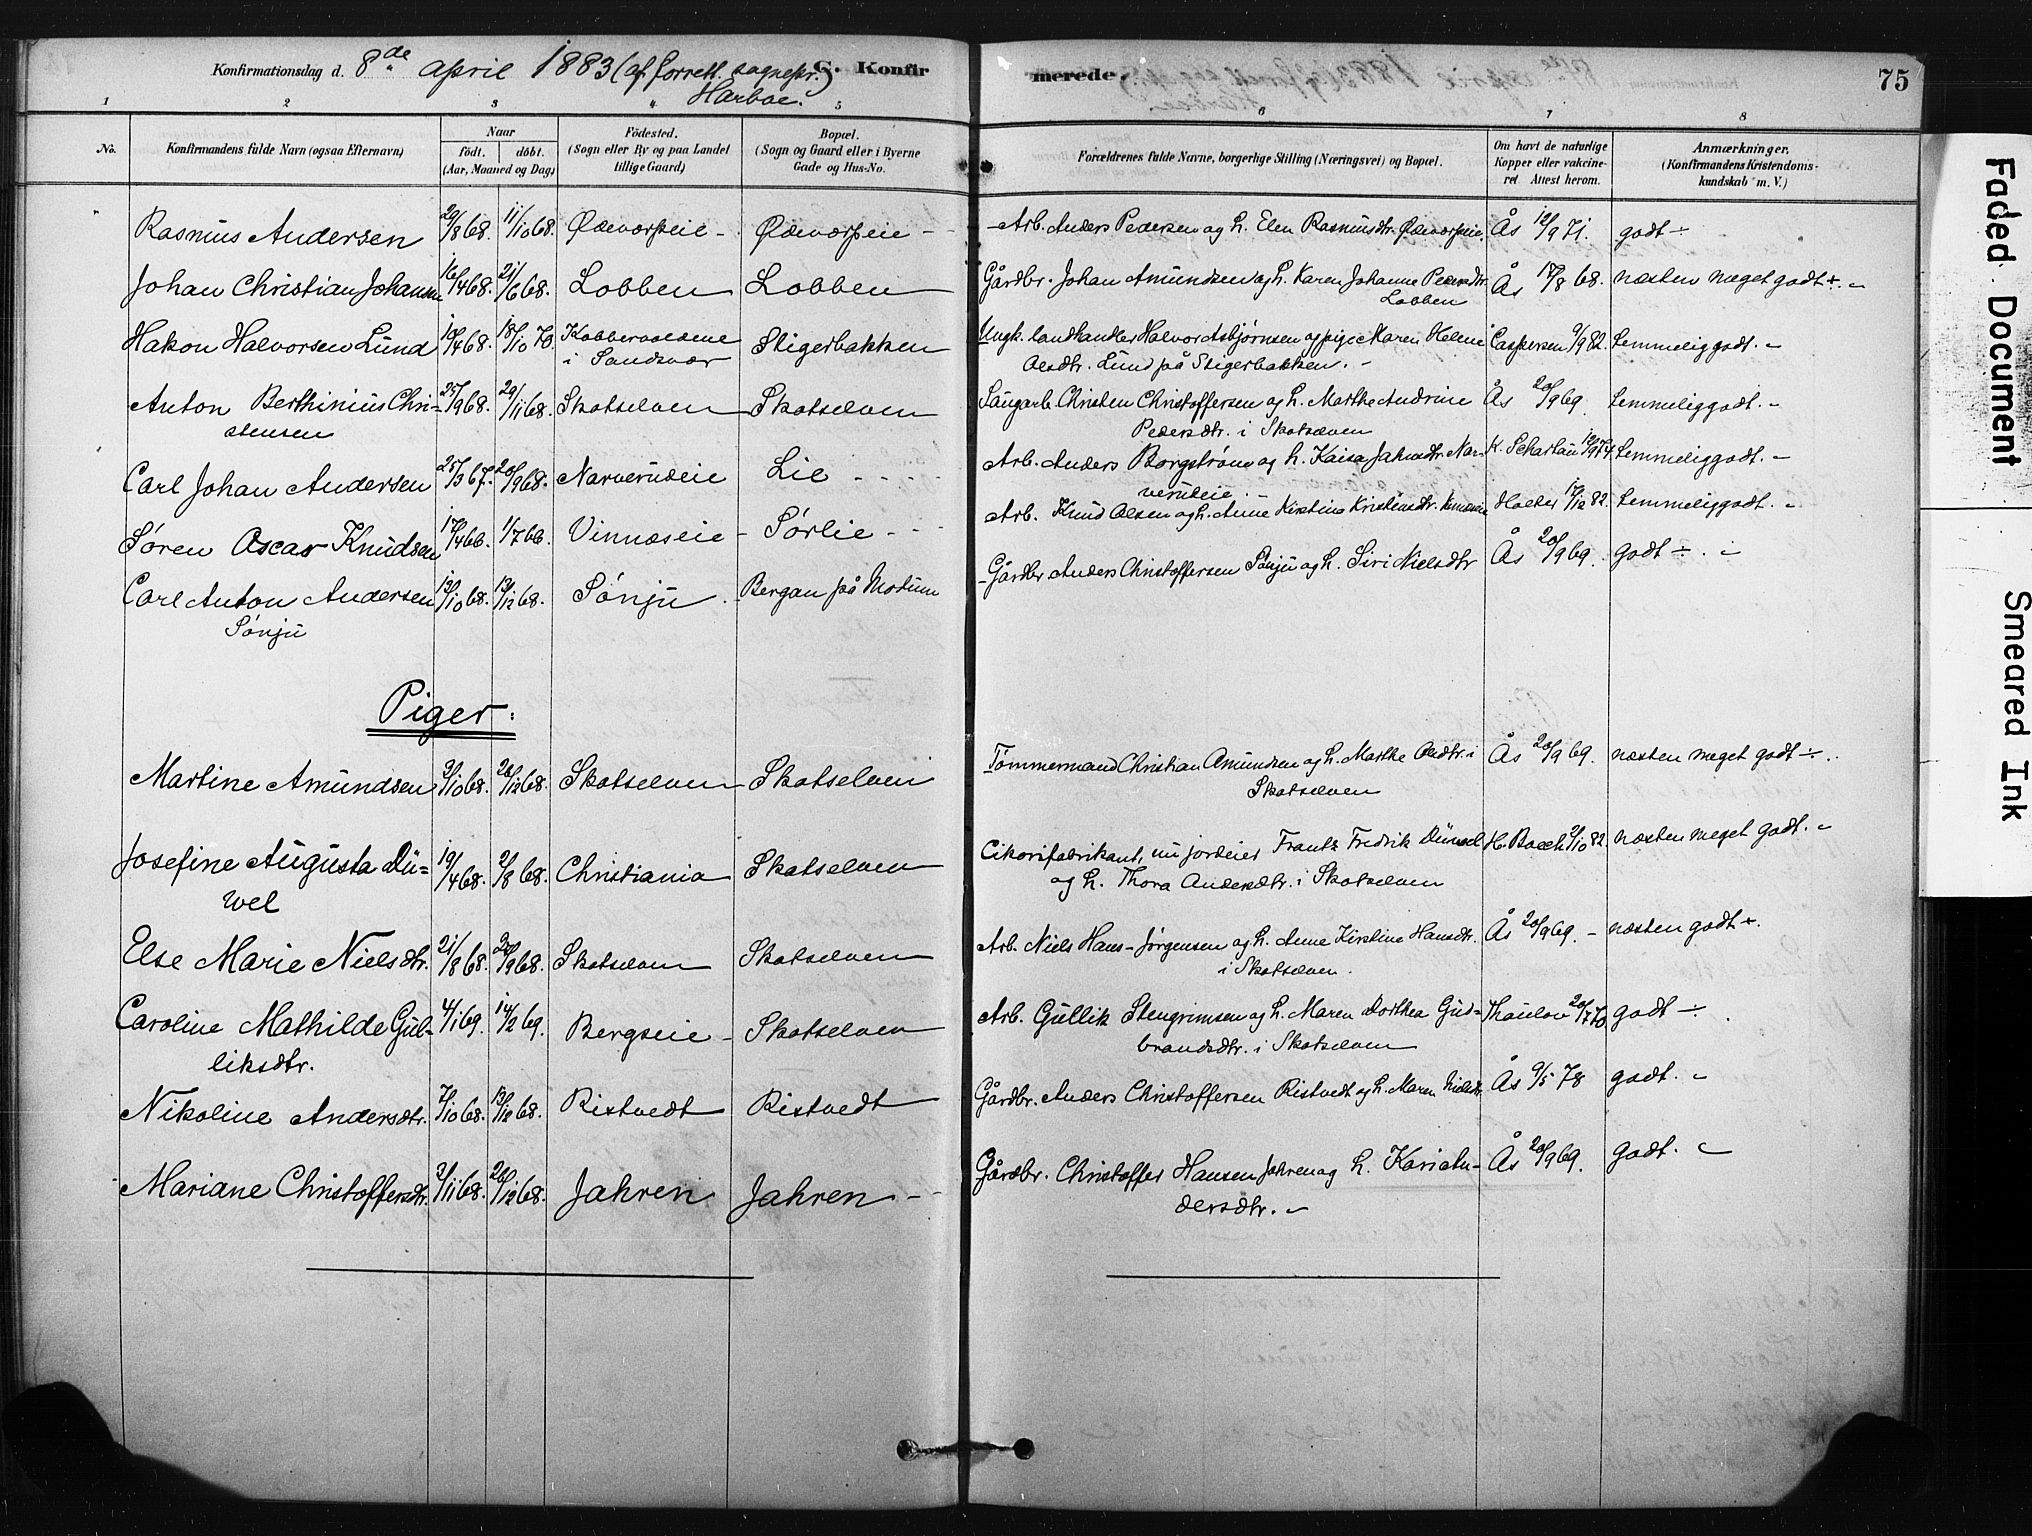 Konfirmationsdag d. 8de april 1883 (af forrett. sognepr.) C. Konfirmerede. 75
Harboe.
1 2 3 4 5 6 7 8
No. Konfirmandens fulde Navn (ogsaa Efternavn) Naar födt. döbt. (Aar, Maaned og Dag) Födested. (Sogn eller By og paa Landet tillige Gaard) Bopæl. (Sogn og Gaard eller i Byerne Gade og Hus-No. Forældrenes fulde Navne, borgerlige Stilling (Næringsvei) og Bopæl. Om havt de naturlige Kopper eller vakcineret Attest herom. Anmærkninger. (Konfirmandens Kristendomskundskab m. V.)
Rasmus Andersen 29/8 68. 11/10 68. Ødeværpeie - Ødeværpeie - Arb. Anders Pedersen og h. Elen Rasmusdtr. Ødeværpeie. Ås 12/9 71. godt ÷
Johan Christian Johansen 16/4 68. 21/6 68. Lobben Lobben Gårdbr. Johan Amundsen og h. Karen Johanne Pedersdtr. Ås 17/8 68. næsten meget godt +.
Lobben
Hakon Halvorsen Lund 10/4 68. 18/10 70. Kobbervoldene Stigerbakken Ungk. landhandler Halvor Asbjørnsen og pige Maren Helene Caspersen 9/9 82. temmelig godt.
i Sandsvær Olsdtr. Lund på Stigerbakken.
Anton Berthinius Chri- 25/9 68. 29/11 68. Skotselven Skotselven Saugarb. Christen Christoffersen og h. Marthe Andrine Ås 20/9 69. temmelig godt.
stensen Pedersdtr. i Skotselven
Carl Johan Andersen 25/3 67. 20/9 68. Narverudeie Lie Arb. Anders Borgstrøm og h. Kaisa Jahnsdtr. Nar- K. Schartau 19/9 74 temmelig godt.
verudeie.
Søren Oscar Knudsen 17/4 66. 1/7 66. Vinnæseie - Sørlie Arb. Knud Olsen og h. Anne Kirstine Kristensdtr. Holter 17/12 82. temmelig godt.
Carl Anton Andersen 12/10 68. 13/12 68. Sønju Bergan på Modum Gårdbr. Anders Christoffersen Sønju og h. Siri Nielsdtr Ås 20/9 69. godt ÷
Sønju
Piger:
Martine Amundsen 3/10 68. 26/12 68. Skotselven Skotselven Tømmermand Christian Amundsen og h. Marthe Olsdtr. i Ås 20/9 69. næsten meget godt ÷
Skotselven
Josefine Augusta Dü- 19/4 68. 2/8 68. Christiania Skotselven Cikorifabrikant, nu jordeier Frantz Fredrik Düwel H. Boeck 2/10 82. næsten meget godt.
wel og h. Thora Andersdtr. i Skotselven
Else Marie Nielsdtr. 21/8 68. 20/9 68. Skotselven Skotselven Arb. Niels Hans-Jørgensen og h. Anne Kirstine Hansdtr. Ås 20/9 69. - næsten godt +.
i Skotselven.
Caroline Mathilde Gul- 4/1 69. 14/2 69. Bergseie - Skotselven Arb. Gullik Stengrimsen og h. Maren Dorthea Gud- Thaulow 20/7 70. godt ÷
liksdtr. brandsdtr. i Skotselven
Nikoline Andersdtr. 7/10 68. 13/12 68. Ristvedt Ristvedt Gårdbr. Anders Christoffersen Ristvedt og h. Maren Nielsdtr. Ås 9/5 78 godt.
Mariane Christoffersdtr. 3/11 68. 26/12 68. Jahren Jahren - Gårdbr. Christoffer Hansen Jahren og h. Kari An- Ås 20/9 69. godt.
dersdtr.
Faded Document
Smeared Ink